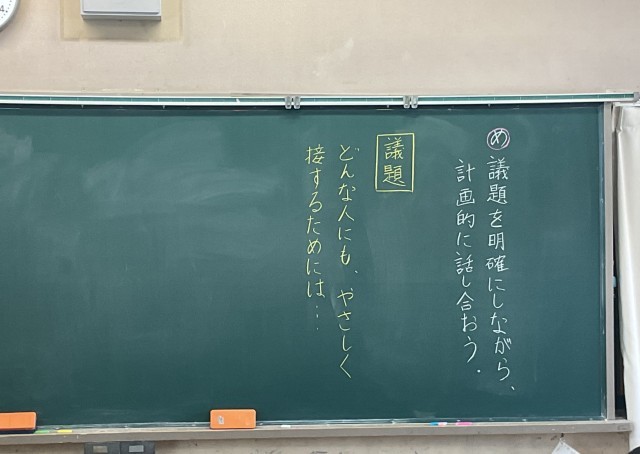 め 議題を明確にしながら、
計画的に話し合おう.
議題
どんな人にも、やさしく
接するためには…